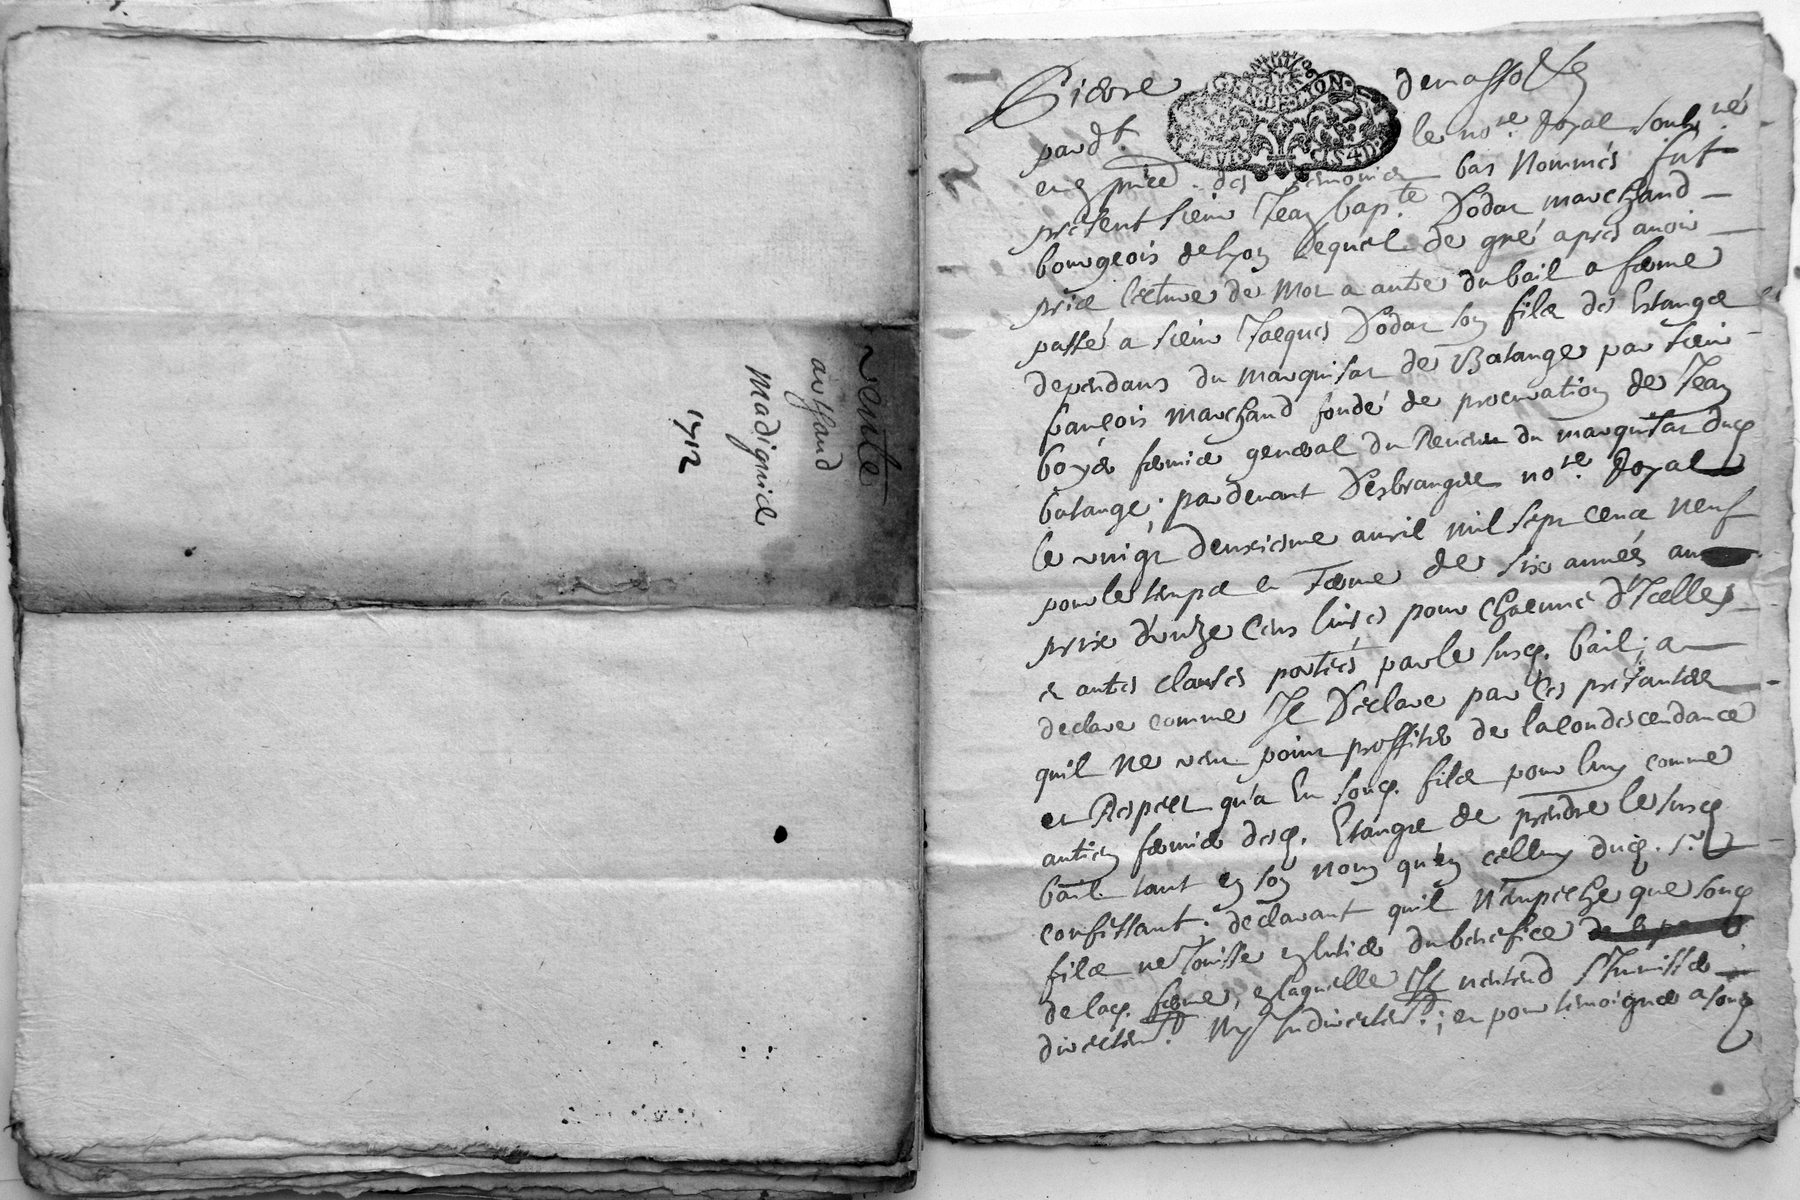 vente
arthaud
Madignier
1712
pardt. le nore. Royal soubne
en pnce. des temoins bas Nommés fut
present sieur Jean bapte. Dodat marchand
bourgeois de lyon lequel de gré apres auoir
prit lecture de mot a autre du bail a ferme
passé a sieur Jacques Dodat son fils des Estangs
dependans du marquisat de Balange par sieur
françois marchand fondé de procuration de Jean
boyer fermier general du Reuenu du marquisat dud.
balange; pardeuant Desbrangers nore. Royal
le vingt deuxiesme auril mil sept cens neuf
pour le temps et terme de six années au
prix d'onze Cens liures pour chacune d'Icelles
et autres clauses portées par le susd. bail; a
declare comme Il Declare par les presantes
quil Ne veut point proffiter de la condescendance
et Respect qu'a Eu sond. fils pour luy comme
antien fermier desd. Etangs de prendre le susd.
bail tant en son nom qu'en celluy dud. sr.
consittant; declarant quil N'empeche que sond.
fils ne Jouisse entier du benefice
de lad. ferme, en laquelle Il n'entend s'Jmisser
directemt. Ny Indirectemt.; et pour temoigner a sond.